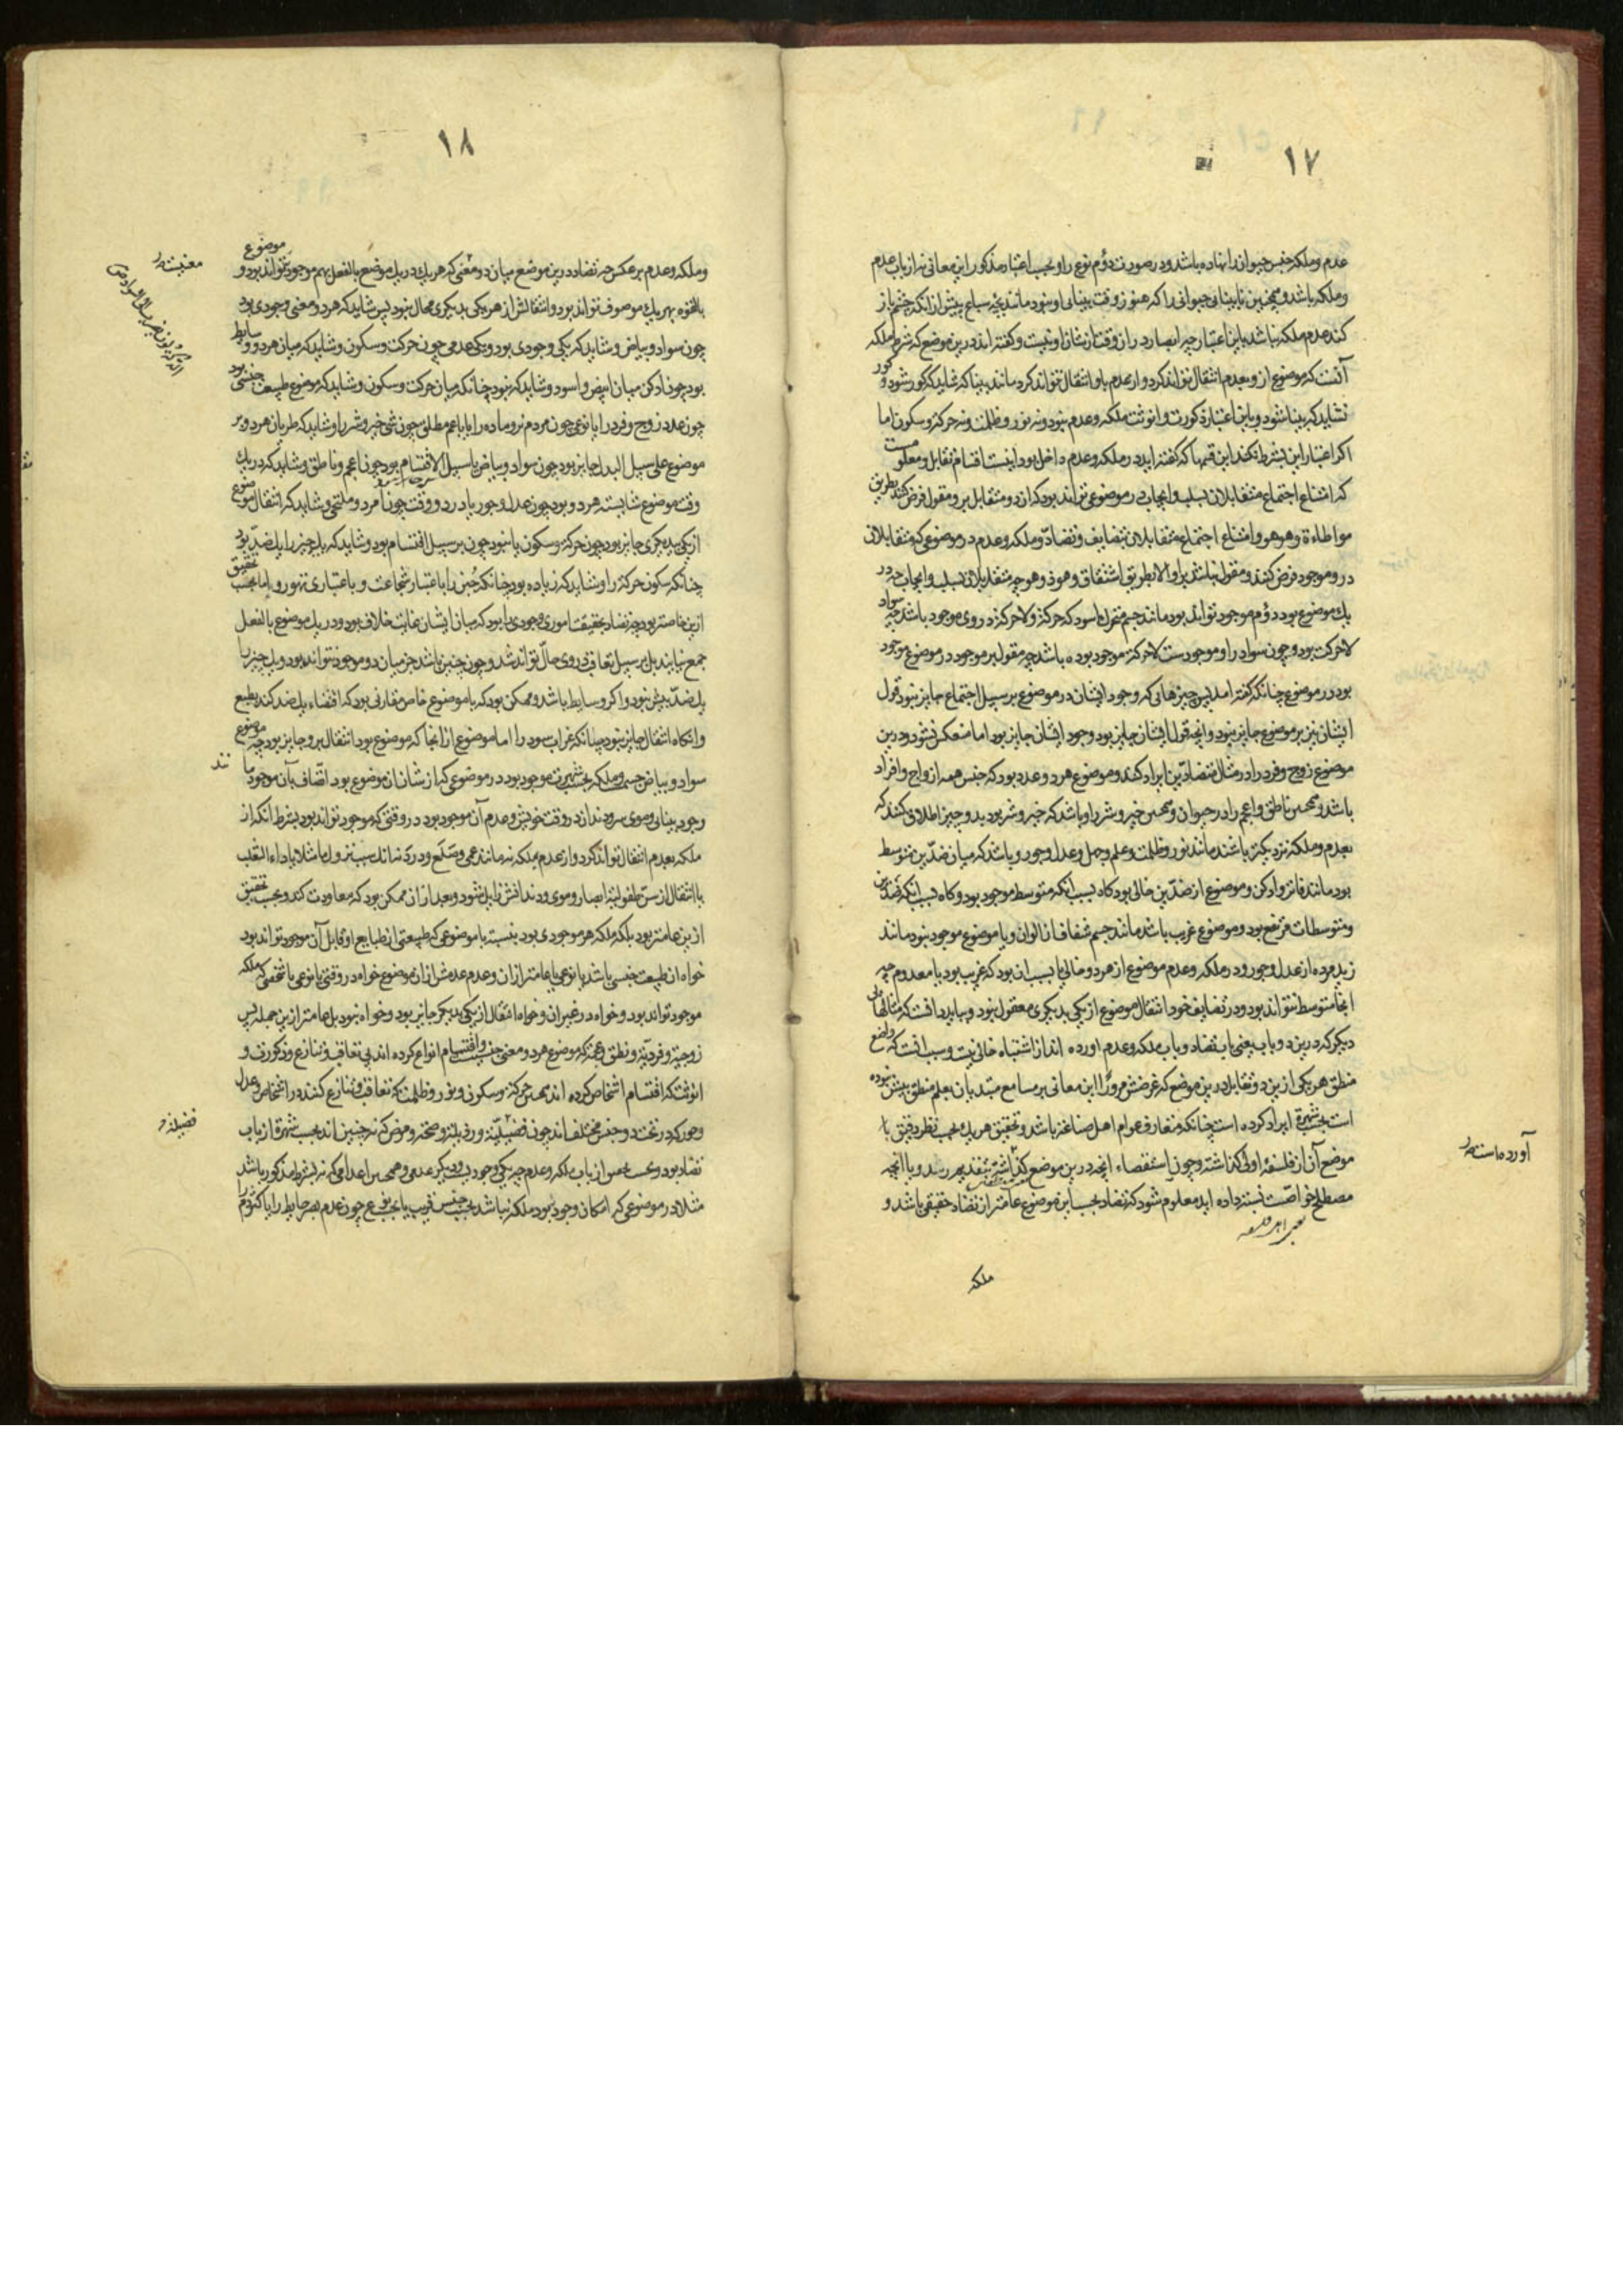 ۱۷
عدم و ملکه جنس حیوان دانهاده باشد و در صورت دوم نوع را و بحسب اعتبار مذکور این معانی نه از باب عدم
و ملکه باشد و همچنین نابینائی حیوانی را که هنوز وقت بینائی او نبود مانند بچه سباع پیش از آنکه چشم باز
کند عدم ملکه نباشد باین اعتبار چه ابصار در آن وقت از شان او نیست و گفته اند درین موضع که شرط ملکه
آنست که موضوع ازو بعدم انتقال تواند کرد و از عدم باو انتقال نتواند کرد مانند بینا که شاید که کور شود و کور
نشاید که بینا شود و باین اعتبار ذکورت و انوثت ملکه و عدم نبود و نه نور و ظلمت و نه حرکة و سکون اما
اگر اعتبار این شرط نکنند این قسمها که گفته اید در ملکه و عدم داخل بود اینست اقسام تقابل و معلومست
که امتناع اجتماع متقابلان بسلب و ایجاب در موضوعی تواند بود که از دو متقابل برو مقول فرض کنند بطریق
مواطاة و هو هو و امتناع اجتماع متقابلان بتضایف و تضاد و ملکه و عدم در موضوعی که متقابلان
درو موجود فرض کنند و مقول نباشد برو الا بطریق اشتقاق و هو ذو هو چه متقابلان بسلب و ایجاب در
یک موضوع بود دوم موجود تواند بود مانند جسم متحرک اسود که حرکة و لا حرکة در وی موجود باشد چه سواد
لا حرکت بود و چون سواد را و موجودست لا حرکة موجود بوده باشد چه مقول بر موجود در موضوع موجود
بود در موضوع چنانکه گفته آمد پس چیزهائی که وجود ایشان در موضوع بر سبیل اجتماع جایز نبود قول
ایشان نیز بر موضوع جایز نبود و آنچه قول ایشان جایز بود وجود ایشان جایز بود اما منعکس نشود و درین
موضع زوج و فرد را در مثال متضادین ایراد کنند و موضوع هر دو عدد بود که جنس همه ازواج و افراد
باشد و همچنین ناطق و اعجم را در حیوان و همچنین خیر و شر را و باشد که خیر و شر بود بدو چیز اطلاق کنند که
بعدم و ملکه نزدیکتر باشند مانند نور و ظلمت و علم و جهل و عدل و جور و باشد که میان ضدین متوسط
بود مانند فاتر و ادکن و موضوع از ضدین خالی بود گاه بسبب آنکه متوسط موجود بود و گاه بسبب آنکه ضدین
و متوسطات مرتفع بود و موضوع غریب باشد مانند جسم شفاف از الوان و یا موضوع موجود نبود مانند
زید مرده از عدل و جور و در ملکه و عدم موضوع از هر دو خالی یا بسبب آن بود که غریب بود یا معدوم چه
اینجا متوسط نتواند بود و در تضایف خود انتقال موضوع از یکی بدیگری معقول نبود و بباید دانست که مثالهای
دیگر که درین دو باب یعنی باب تضاد و باب ملکه و عدم آورده اند از اشتباه خالی نیست و سبب آنست که واضع
منطق هر یکی ازین دو تقابل درین موضع که غرضش مرور این معانی بر مسامع مبتدیان بعلم منطق بیش نبوده
است بحسب شهرة ایراد کرده است چنانکه متعارف عوام اهل صناعة باشد و تحقیق هر یک بحسب نظر دقیق با
موضع آن از فلسفهٔ اولی گذاشته و چون استقصاء آنچه درین موضع گذاشته بتقدیم رسد و با آنچه
مصطلح خواصّست نسبت داده اید معلوم شود که تضاد بحسب این موضوع عامتر از تضاد حقیقی باشد و
یعنی اهل فلسفه
ملکه
آورده است
۱۸
موضوع
و ملکه و عدم بر عکس چه تضاد درین موضع میان دو معنی که هر یک در یک موضع بالفعل بهم موجود نتواند بود و
بالقوه بهر یک موصوف تواند بود و انتقالش از هر یکی بدیگری محال نبود پس شاید که هر دو معنی وجودی بود
چون سواد و بیاض و شاید که یکی وجودی بود و یکی عدمی چون حرکت و سکون و شاید که میان هر دو وسایط
بود چون ادکن میان ابیض و اسود و شاید که نبود چنانکه میان حرکت و سکون و شاید که موضوع طبیعت جنسی بود
چون عدد زوج و فرد را یا نوعی چون مردم نر و ماده را یا اعم مطلق چون شی خیر و شر را و شاید که طریان هر دو بر
موضوع علی سبیل البدل جایز بود چون سواد و بیاض یا سبیل الاقتسام بود چون اعجم و ناطق و شاید که در یک
وقت موضوع شایسته هر دو بود چون عدل و جور یا در دو وقت چون امرد و ملتحی و شاید که انتقال موضوع
از یکی بدیگری جایز بود چون حرکة و سکون یا نبود چون بر سبیل اقتسام بود و شاید که یک چیز را یک ضد بود
چنانکه سکون حرکة را و شاید که زیاده بود چنانکه جبن را باعتبار شجاعت و باعتباری تهور و اما بحسب تحقیق
ازین خاصتر بود چه تضاد بحقیقت اموری وجودی را بود که میان ایشان غایت خلاف بود و در یک موضوع بالفعل
جمع نیایند بل بر سبیل تعاقب در وی حال تواند شد و چون چنین باشد جز میان دو موجود نتواند بود و یک چیز را
یک ضد بیش نبود و اگر وسایط باشد و ممکن بود که با موضوع خاص مقارنی بود که اقتضاء یک ضد کند بطبع
و آنگاه انتقال جایز نبود چنانکه غراب سود را اما موضوع از آنجا که موضوع بود انتقال برو جایز بود چه موضوع
سواد و بیاض جسمست و ملکه بحسب شهرت موجود بود در موضوعی که از شان آن موضوع بود اتّصاف بآن موجود ما
وجود بینائی و موی سر و دندان در وقت خویش و عدم آن موجود بود در وقتی که موجود تواند بود بشرط آنکه از
ملکه بعدم انتقال تواند کرد و از عدم بملکه نه مانند عمی و صلع و درد
با انتقال از سن طفولیة ابصار و موی و دندانش زایل شود و بعد از آن ممکن بود که معاودت کند و بحسب تحقیق
ازین عامتر بود بلکه ملکه هر موجودی بود بنسبة با موضوعی که طبیعتی از طبایع او قابل آن موجود تواند بود
خواه آن طبیعت جنسی باشد یا نوعی یا عامتر از آن و عدم عدمش از آن موضوع خواه در وقتی یا نوعی یا شخصی که ملکه
موجود تواند بود و خواه در غیر آن و خواه انتقال از یکی بدیگر جایز بود و خواه نبود بل عامتر ازین جمله پس
زوجیة و فردیة و نطق و عجمة که موضوع هر دو معنی جنسیست و اقتسام انواع کرده اند بی تعاقب و تنازع و ذکورت و
انوثت که اقتسام اشخاص کرده اند همچنین حرکة و سکون و نور و ظلمت که تعاقب و تنازع کنند در اشخاص و عدل
و جور که در تحت دو جنس مختلف اند چون فضیلة و رذیلة و صحة و مرض که نه چنین اند بحسب شهرة از باب
تضاد بود و بحسب از باب ملکه و عدم چه یکی وجودیست و دیگر عدمی و همچنین اعدامی که نه بشرط مذکور باشد
مثلا در موضوعی که امکان وجود بود ملکه نباشد بحسب جنس قریب یا بحسب نوع چون عدم بصر حایط را یا کژدم را
فضیلة و